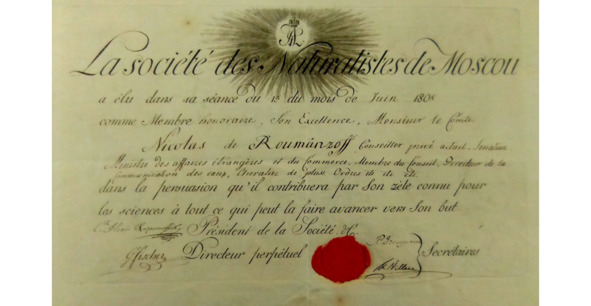 La société des Naturalistes de Moscou
a élu dans sa séance du 13 du mois de Juin 180
comme Membre honoraire, Son Excellence, Monsieur le Comte
Nicolas de Roumänzoff Conseiller privé actuel, Senateur
Ministre des affaires étrangères et du Commerce, Membre du Conseil, Directeur de la
Communication des eaux, Chevalier de plus. Ordres
dans la persuasion qu'il contribuera par Son zèle connu pour
les sciences à tout ce qui peut la faire avancer vers Son but
Président de la Société
G Fischer Directeur perpétuel
Secrétaires